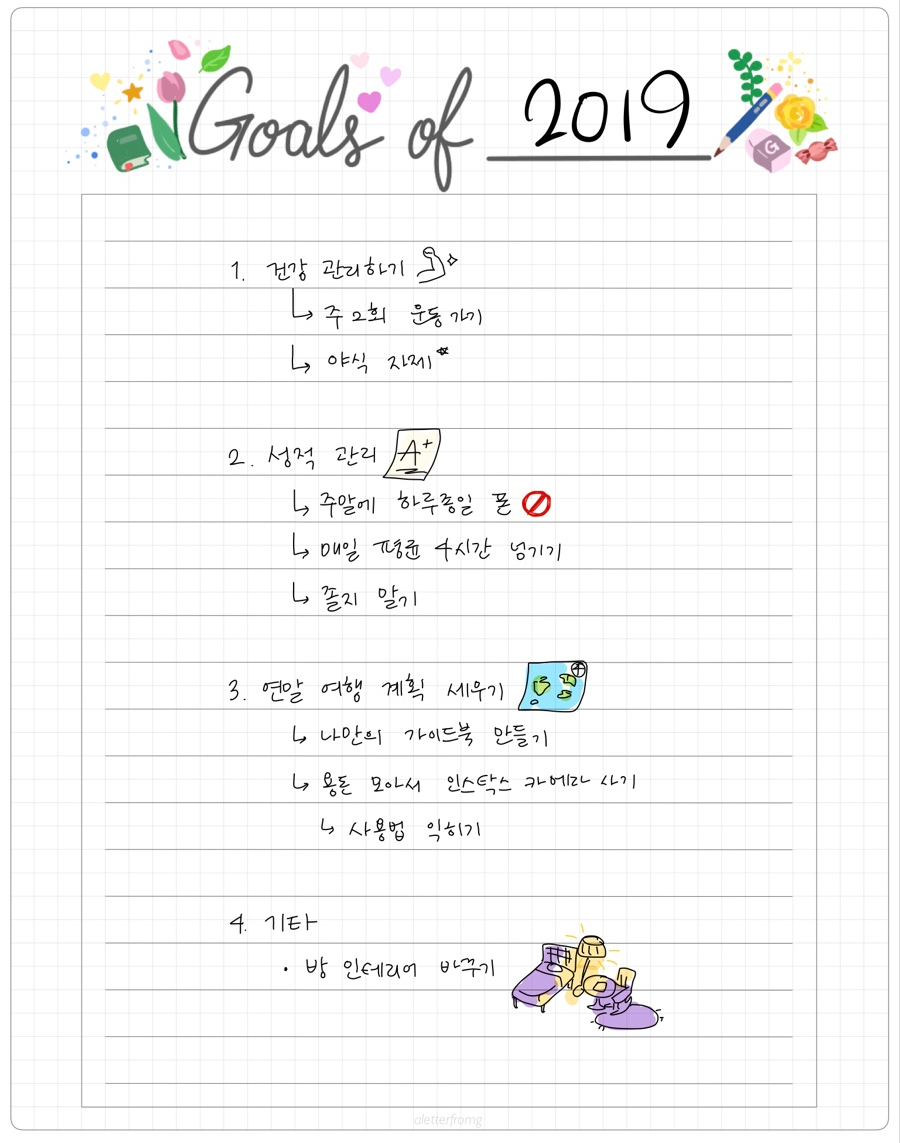 Goals of 2019
1. 건강 관리하기
↳ 주 2회 운동 가기
↳ 야식 자제*
2. 성적 관리 A+
↳ 주말에 하루종일 폰
↳ 매일 평균 4시간 넘기기
↳ 졸지 말기
3. 연말 여행 계획 세우기
↳ 나만의 가이드북 만들기
↳ 용돈 모아서 인스탁스 카메라 사기
↳ 사용법 익히기
4. 기타
• 방 인테리어 바꾸기
G
aletterfromg